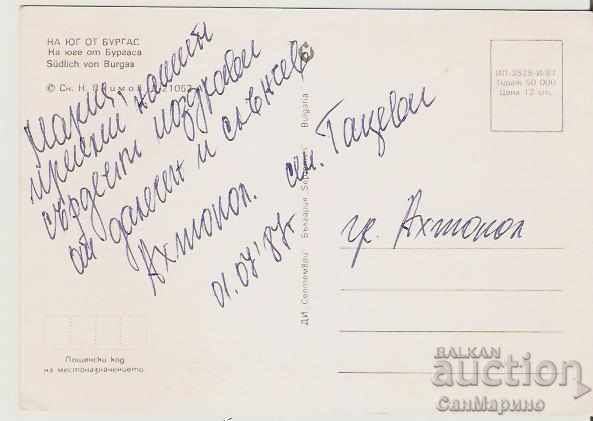 НА ЮГ ОТ БУРГАС
На юге от Бургаса
Südlich von Burgas
© Сн. Н.
Мария,
приеми нашите
сърдечни поздрави
от далечен и слънчев
Ахтопол.
сем. Гацеви
01.07'87г.
ДИ „Септември“ България Bulgaria
ИП-2525-И-87
Тираж 50 000
Цена 12 ст.
гр. Ахтопол
Пощенски код
на местоназначението
BALKAN
auction
СанМарино